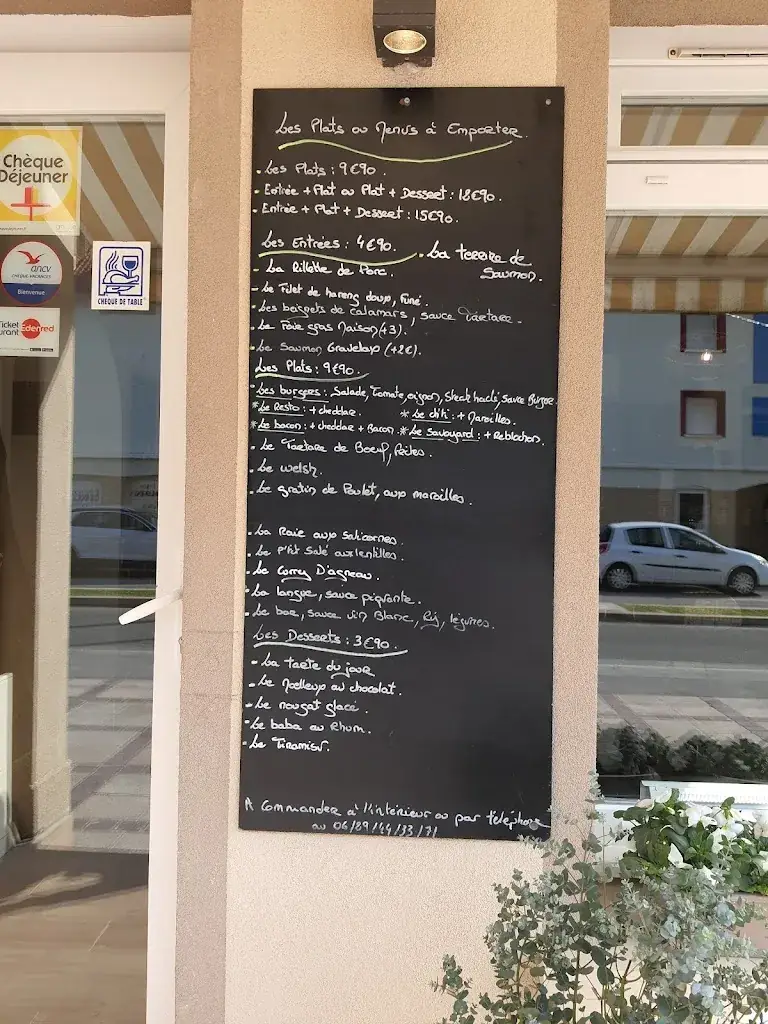 Les Plats ou Menus à Emporter.
- Les Plats : 9€90.
- Entrée + Plat ou Plat + Dessert : 18€90.
- Entrée + Plat + Dessert : 15€90.
Les Entrées : 4€90.
- La terrine de Saumon.
- La Rillette de Porc.
- Le Filet de hareng doux, fumé.
- Les beignets de calamars, sauce Tartare.
- Le Foie gras Maison (+3).
- Le Saumon Gravelax (+2€).
Les Plats : 9€90.
- Les burgers : Salade, Tomate, oignon, Steak haché, sauce Burger.
* Le Resto : + cheddar. * Le ch'ti : + Maroilles.
* Le bacon : + cheddar + Bacon. * Le Savoyard : + Reblochon.
- Le Tartare de Boeuf, frites.
- Le welsh.
- Le gratin de Poulet, aux maroilles.
- La Raie aux Salicornes.
- Le P'tit Salé aux lentilles.
- Le Curry D'agneau.
- La langue, sauce piquante.
- Le bar, sauce vin Blanc, Riz, légumes.
Les Desserts : 3€90.
- La tarte du jour
- Le Moelleux au chocolat.
- Le nougat glacé.
- Le baba au Rhum.
- Le Tiramisu.
A Commander à l'intérieur ou par téléphone
au 06/89/44/33/71
Chèque
Déjeuner
ancv
CHÈQUE-VACANCES
Bienvenue
CHEQUE DE TABLE
Ticket
Restaurant Edenred